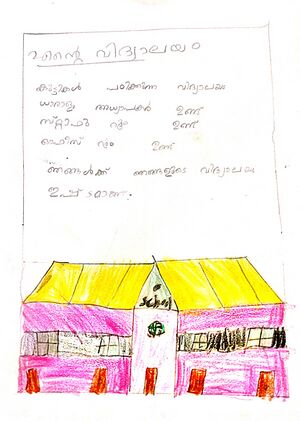 എന്റെ വിദ്യാലയം
കുട്ടികൾ പഠിക്കുന്ന വിദ്യാലയം
ധാരാളം അധ്യാപകർ ഉണ്ട്
സ്റ്റാഫ് റൂം ഉണ്ട്
ഓഫീസ് റൂം ഉണ്ട്
ഞങ്ങൾക്ക് ഞങ്ങളുടെ വിദ്യാലയം
ഇഷ്ടമാണ്.
School